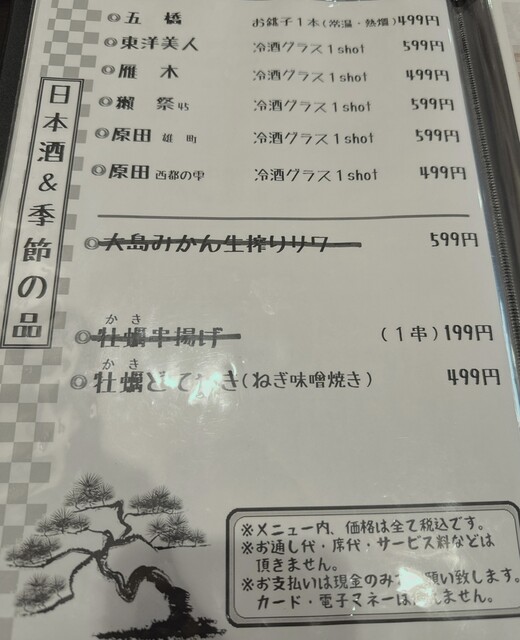 日本酒&季節の品
◎五 橋 お銚子1本(常温・熱燗)499円
◎東洋美人 冷酒グラス1shot 599円
◎雁 木 冷酒グラス1shot 499円
◎獺 祭 45 冷酒グラス1shot 599円
◎原田 雄 町 冷酒グラス1shot 599円
◎原田 西都の雫 冷酒グラス1shot 499円
◎大島みかん生搾りサワー 599円
かき
◎牡蠣串揚げ (1串)199円
かき
◎牡蠣どて き(ねぎ味噌焼き) 499円
※メニュー内、価格は全て税込です。
※お通し代・席代・サービス料などは
頂きません。
※お支払いは現金のみで 願い致します。
カード・電子マネーは使えません。